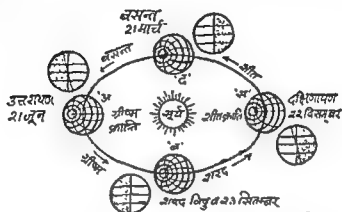 बसन्त
२१ मार्च
बसन्त
शीत
'द'
उत्तरायण
२१ जून
'अ'
ग्रीष्म
क्रान्ति
सूर्य
शीत क्रान्ति
'स'
दक्षिणायण
२२ दिसम्बर
ग्रीष्म
'ब'
शरद
शरद विषुव २३ सितम्बर